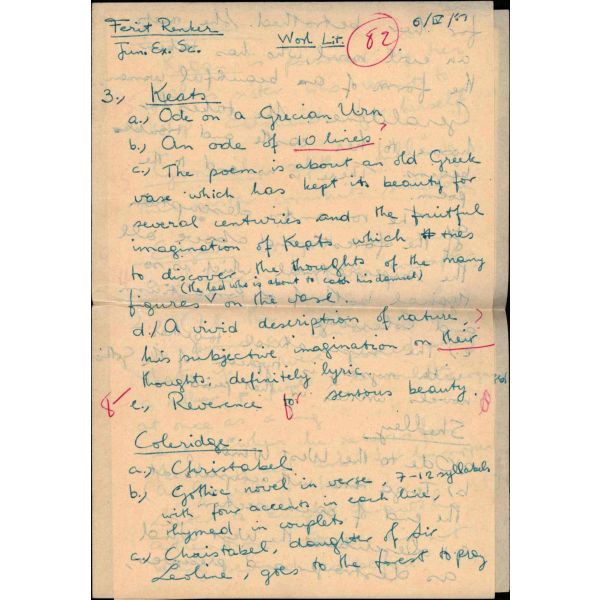 Ferit Renker
Jun. Ex. Sc.
Worl Lit.
82
6/IV/
3., Keats
a., Ode on a Grecian Urn
b., An ode of 10 lines ?
c., The poem is about an old Greek
vase which has kept its beauty for
several centuries and the fruitful
imagination of Keats which tries
to discover the thoughts of the many
(the lad who is about to catch his damsel)
figures v on the vase.
d./ A vivid description of nature, ?
his subjective imagination on their
thoughts, definitely lyric.
8- e., Reverence for sensous beauty.
Coleridge
a., Christabel
b., Gothic novel in verse, 7-12 syllabels
with four accents in each line,
rhymed in couplets
c., Chaistabel, daughter of Sir
Leoline, goes to the forest to pray